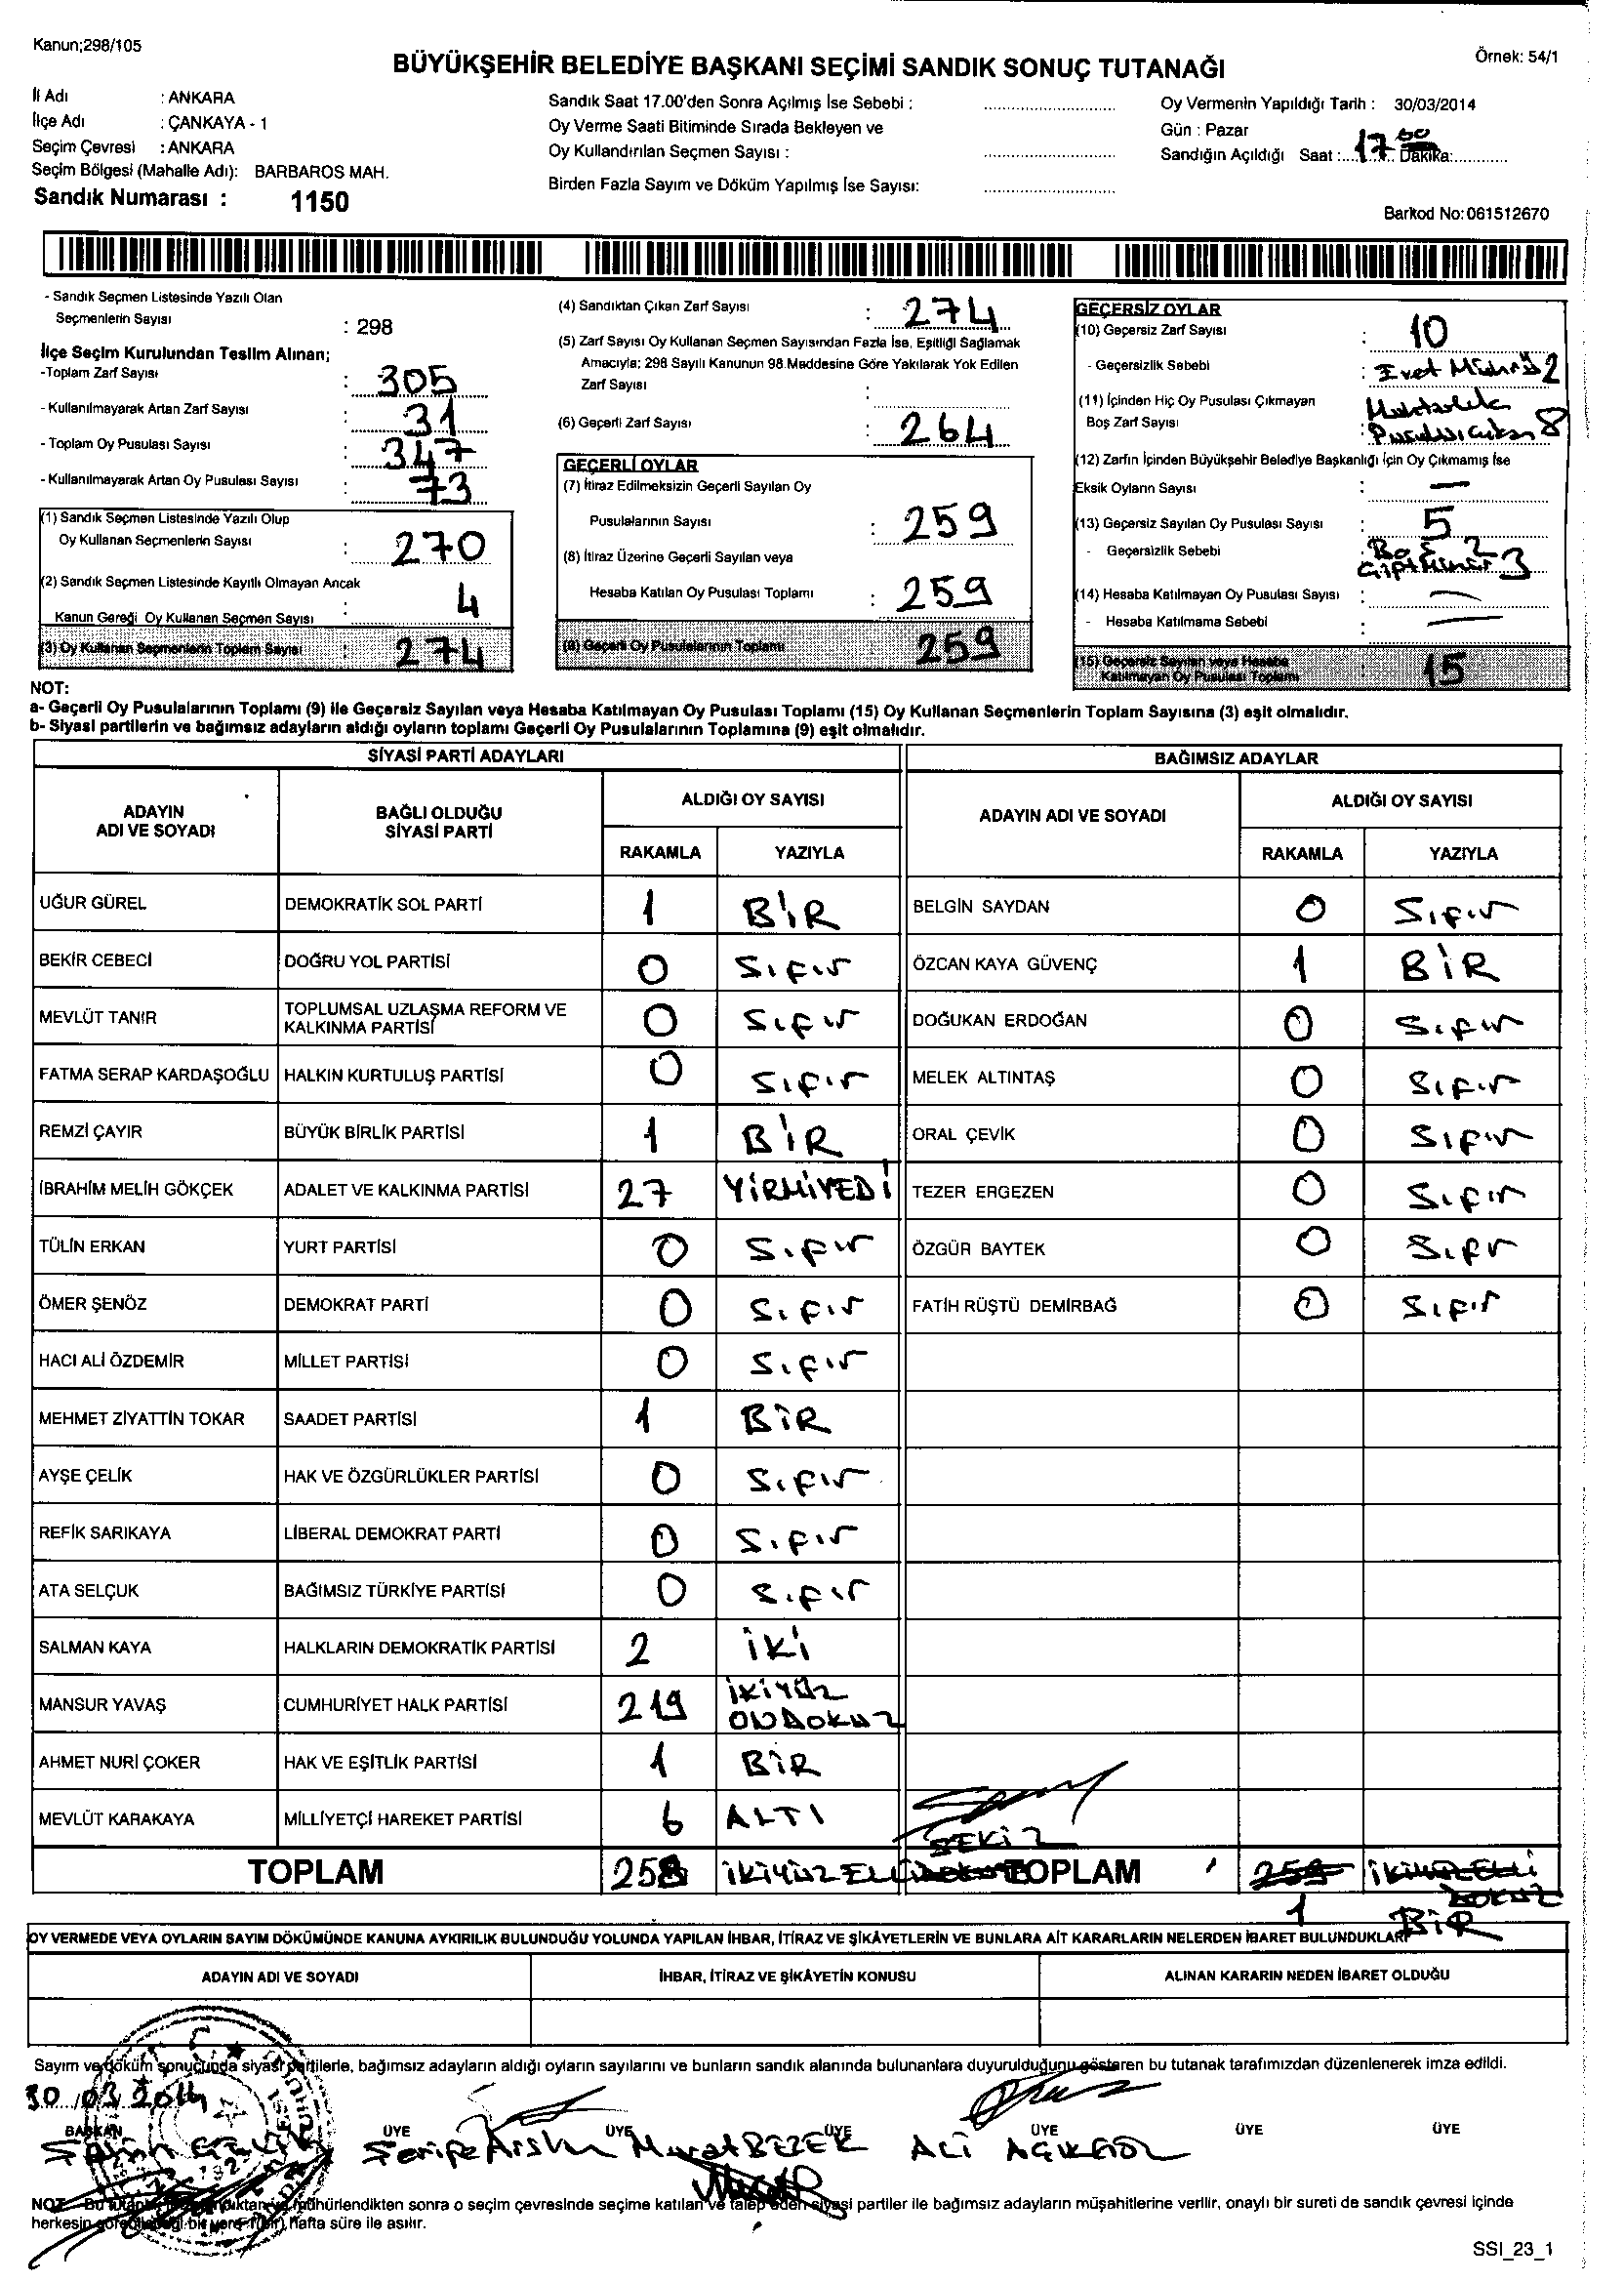 Kanun;298/105
Örnek: 54/1
BÜYÜKŞEHİR BELEDİYE BAŞKANI SEÇİMİ SANDIK SONUÇ TUTANAĞI
İl Adı : ANKARA
İlçe Adı : ÇANKAYA - 1
Seçim Çevresi : ANKARA
Seçim Bölgesi (Mahalle Adı): BARBAROS MAH.
Sandık Numarası : 1150
Sandık Saat 17.00'den Sonra Açılmış İse Sebebi :
Oy Verme Saati Bitiminde Sırada Bekleyen ve
Oy Kullandırılan Seçmen Sayısı :
Birden Fazla Sayım ve Döküm Yapılmış İse Sayısı:
Oy Vermenin Yapıldığı Tarih : 30/03/2014
Gün : Pazar
Sandığın Açıldığı Saat : 17 00 Dakika:
Barkod No:061512670
- Sandık Seçmen Listesinde Yazılı Olan
Seçmenlerin Sayısı : 298
İlçe Seçim Kurulundan Teslim Alınan;
-Toplam Zarf Sayısı : 305
- Kullanılmayarak Artan Zarf Sayısı : 31
- Toplam Oy Pusulası Sayısı : 347
- Kullanılmayarak Artan Oy Pusulası Sayısı : 73
(1) Sandık Seçmen Listesinde Yazılı Olup
Oy Kullanan Seçmenlerin Sayısı : 270
(2) Sandık Seçmen Listesinde Kayıtlı Olmayan Ancak
Kanun Gereği Oy Kullanan Seçmen Sayısı : 4
(3) Oy Kullanan Seçmenlerin Toplam Sayısı : 274
(4) Sandıktan Çıkan Zarf Sayısı : 274
(5) Zarf Sayısı Oy Kullanan Seçmen Sayısından Fazla İse, Eşitliği Sağlamak
Amacıyla; 298 Sayılı Kanunun 98.Maddesine Göre Yakılarak Yok Edilen
Zarf Sayısı :
(6) Geçerli Zarf Sayısı : 264
GEÇERLİ OYLAR
(7) İtiraz Edilmeksizin Geçerli Sayılan Oy
Pusulalarının Sayısı : 259
(8) İtiraz Üzerine Geçerli Sayılan veya
Hesaba Katılan Oy Pusulası Toplamı : 259
(9) Geçerli Oy Pusulalarının Toplamı 259
GEÇERSİZ OYLAR
(10) Geçersiz Zarf Sayısı : 10
- Geçersizlik Sebebi : Evet Mührü 2
(11) İçinden Hiç Oy Pusulası Çıkmayan Muhtarlık
Boş Zarf Sayısı : Pusulası çıkan 8
(12) Zarfın İçinden Büyükşehir Belediye Başkanlığı İçin Oy Çıkmamış İse
Eksik Oyların Sayısı : —
(13) Geçersiz Sayılan Oy Pusulası Sayısı : 5
- Geçersizlik Sebebi : Boş 2
3
(14) Hesaba Katılmayan Oy Pusulası Sayısı : —
- Hesaba Katılmama Sebebi : —
(15) Geçersiz Sayılan veya Hesaba
Katılmayan Oy Pusulası Toplamı : 15
NOT:
a- Geçerli Oy Pusulalarının Toplamı (9) ile Geçersiz Sayılan veya Hesaba Katılmayan Oy Pusulası Toplamı (15) Oy Kullanan Seçmenlerin Toplam Sayısına (3) eşit olmalıdır.
b- Siyasi partilerin ve bağımsız adayların aldığı oyların toplamı Geçerli Oy Pusulalarının Toplamına (9) eşit olmalıdır.
SİYASİ PARTİ ADAYLARI
ADAYIN ADI VE SOYADI
BAĞLI OLDUĞU SİYASİ PARTİ
ALDIĞI OY SAYISI
RAKAMLA YAZIYLA
UĞUR GÜREL DEMOKRATİK SOL PARTİ 1 BİR
BEKİR CEBECİ DOĞRU YOL PARTİSİ 0 Sıfır
MEVLÜT TANIR TOPLUMSAL UZLAŞMA REFORM VE KALKINMA PARTİSİ 0 Sıfır
FATMA SERAP KARDAŞOĞLU HALKIN KURTULUŞ PARTİSİ 0 Sıfır
REMZİ ÇAYIR BÜYÜK BİRLİK PARTİSİ 1 BİR
İBRAHİM MELİH GÖKÇEK ADALET VE KALKINMA PARTİSİ 27 YİRMİYEDİ
TÜLİN ERKAN YURT PARTİSİ 0 Sıfır
ÖMER ŞENÖZ DEMOKRAT PARTİ 0 Sıfır
HACI ALİ ÖZDEMİR MİLLET PARTİSİ 0 Sıfır
MEHMET ZİYATTİN TOKAR SAADET PARTİSİ 1 BİR
AYŞE ÇELİK HAK VE ÖZGÜRLÜKLER PARTİSİ 0 Sıfır
REFİK SARIKAYA LİBERAL DEMOKRAT PARTİ 0 Sıfır
ATA SELÇUK BAĞIMSIZ TÜRKİYE PARTİSİ 0 Sıfır
SALMAN KAYA HALKLARIN DEMOKRATİK PARTİSİ 2 İKİ
MANSUR YAVAŞ CUMHURİYET HALK PARTİSİ 219 İKİYÜZ ONDOKUZ
AHMET NURİ ÇOKER HAK VE EŞİTLİK PARTİSİ 1 BİR
MEVLÜT KARAKAYA MİLLİYETÇİ HAREKET PARTİSİ 6 ALTI
SEKİZ
TOPLAM 258 İKİYÜZELLİ
BAĞIMSIZ ADAYLAR
ADAYIN ADI VE SOYADI
ALDIĞI OY SAYISI
RAKAMLA YAZIYLA
BELGİN SAYDAN 0 Sıfır
ÖZCAN KAYA GÜVENÇ 1 BİR
DOĞUKAN ERDOĞAN 0 Sıfır
MELEK ALTINTAŞ 0 Sıfır
ORAL ÇEVİK 0 Sıfır
TEZER ERGEZEN 0 Sıfır
ÖZGÜR BAYTEK 0 Sıfır
FATİH RÜŞTÜ DEMİRBAĞ 0 Sıfır
TOPLAM 259 İKİYÜZELLİ DOKUZ
1 BİR
OY VERMEDE VEYA OYLARIN SAYIM DÖKÜMÜNDE KANUNA AYKIRILIK BULUNDUĞU YOLUNDA YAPILAN İHBAR, İTİRAZ VE ŞİKÂYETLERİN VE BUNLARA AİT KARARLARIN NELERDEN İBARET BULUNDUKLARI
ADAYIN ADI VE SOYADI İHBAR, İTİRAZ VE ŞİKÂYETİN KONUSU ALINAN KARARIN NEDEN İBARET OLDUĞU
Sayım ve döküm sonucunda siyasi partilerle, bağımsız adayların aldığı oyların sayılarını ve bunların sandık alanında bulunanlara duyurulduğunu gösteren bu tutanak tarafımızdan düzenlenerek imza edildi.
30/03/2014
BAŞKAN ÜYE ÜYE ÜYE ÜYE ÜYE ÜYE
Murat BEZEK ALİ AÇIKGÖZ
NOT: Bu tutanak mühürlendikten sonra o seçim çevresinde seçime katılan ve talep eden siyasi partiler ile bağımsız adayların müşahitlerine verilir, onaylı bir sureti de sandık çevresi içinde
herkesin görebileceği bir yere 1 (bir) hafta süre ile asılır.
SSI_23_1